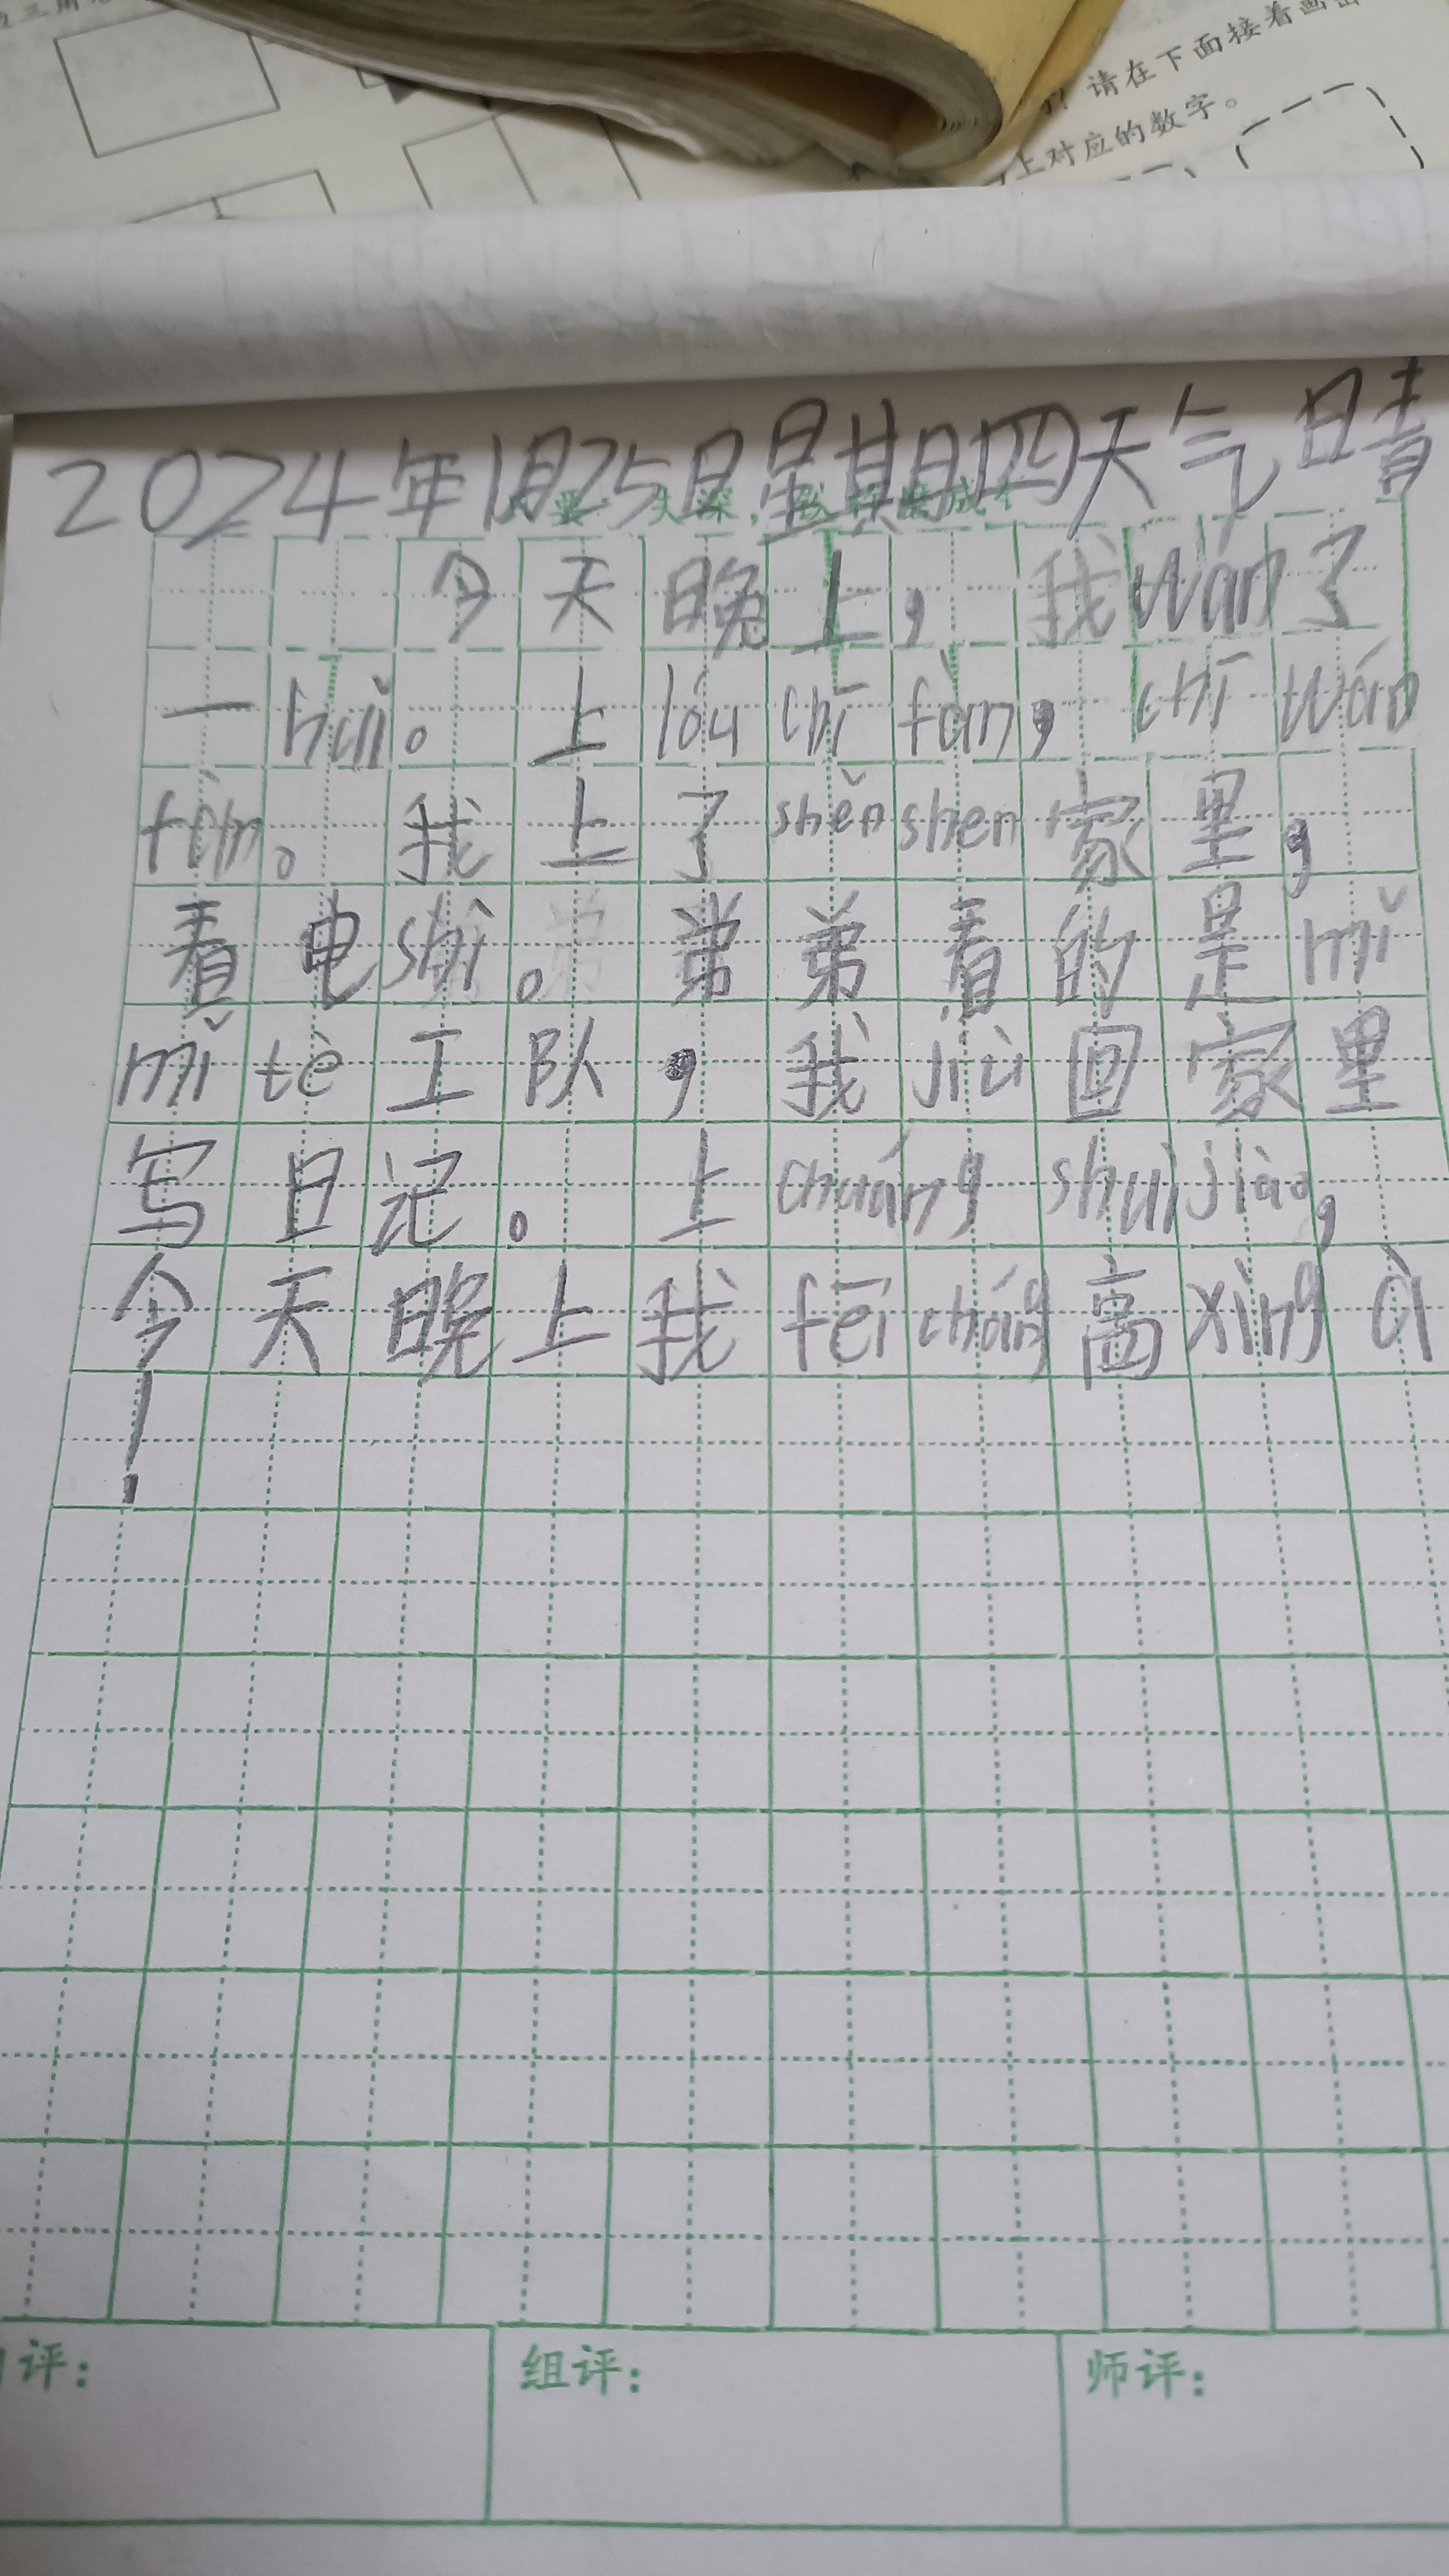 请在下面接着画出
上对应的数字。
2024年1月25日星期四天气晴
今天晚上，我wán了
一huǐ。上lóu chī fàn，chī wán
fàn。我上了shěn shen家里，
看电shì。弟弟看的是mǐ
mǐ tè工队，我jiù回家里
写日记。上chuáng shuì jiào，
今天晚上我fēi cháng高xìng à
！
评：
组评：
师评：